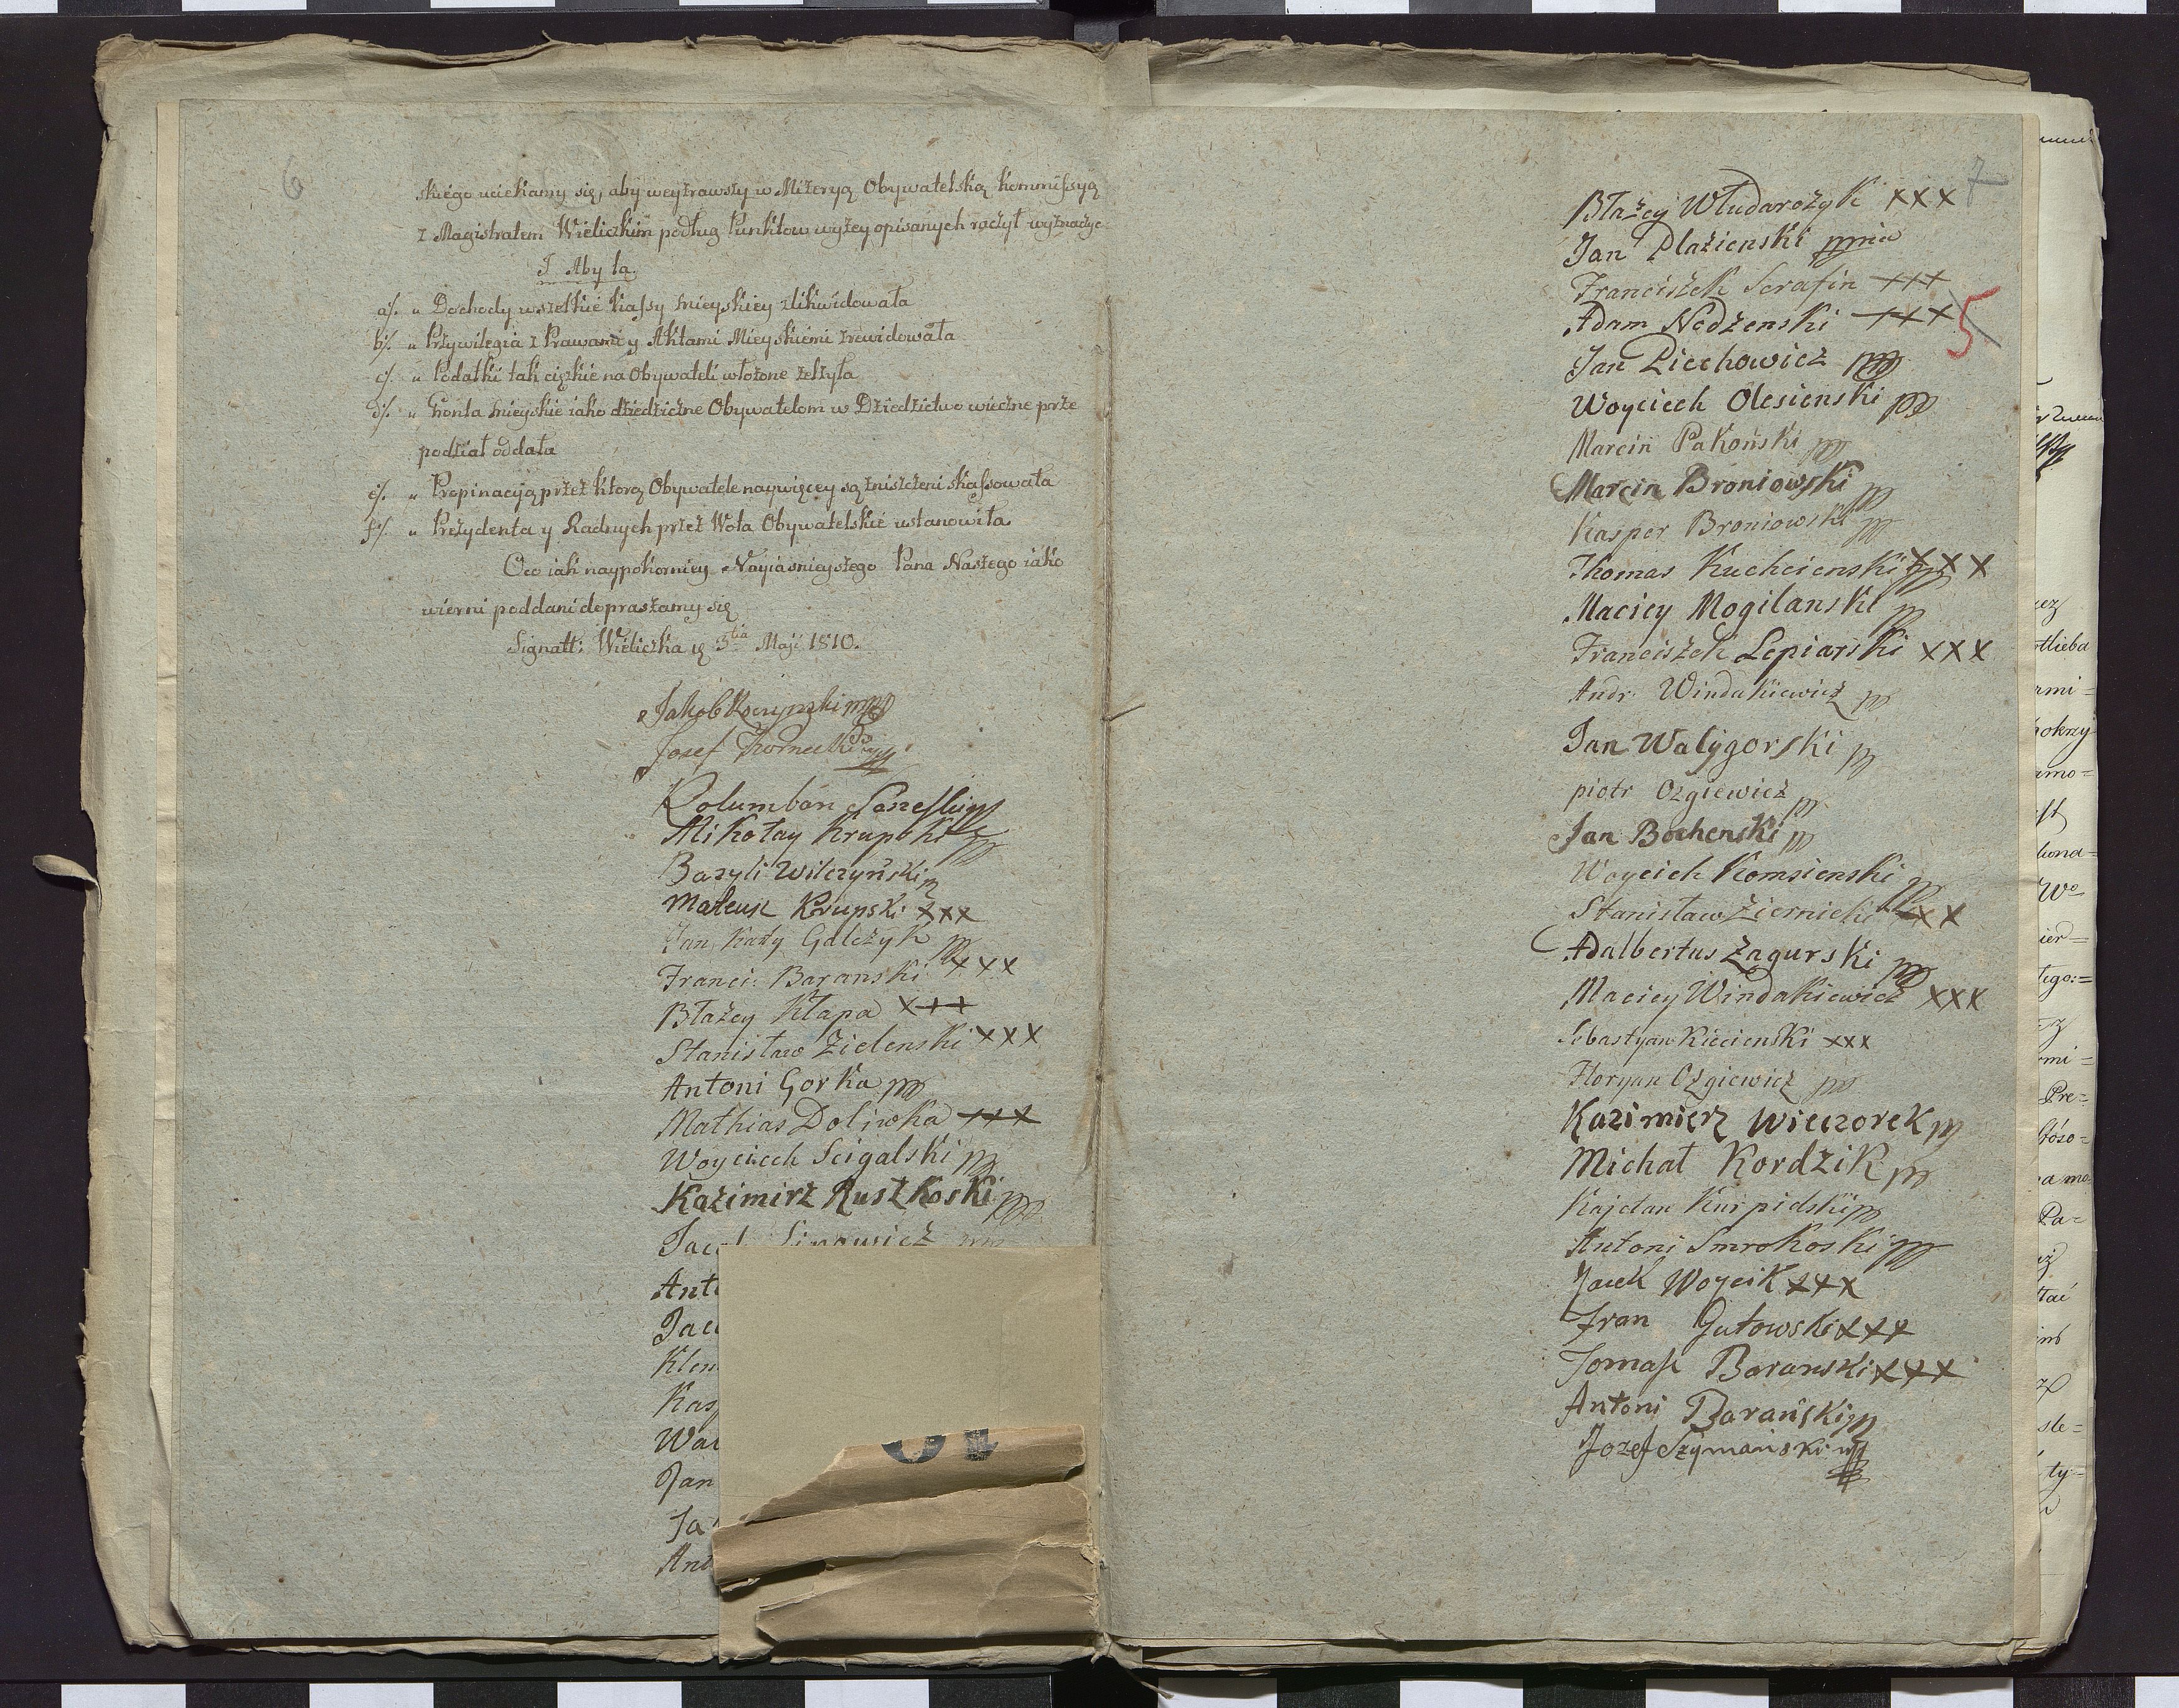 6
skiego uciekamy się, aby weyżrawszy w Miżeryą Obywatelską Kommissyą
z Magistratem Wieliczkim podług Punktow wyżey opisanych raczył wyznaczyc
I Aby ta.
a/. „ Dochody wszelkie kassy mieyskiey zlikwidowała
b/. „ Przywilegia z Prawami y Aktami Mieyskiemi zrewidowała
c/. „ Podatki tak cięzkie na Obywateli włożone zelżyła
d/. „ Gronta mieyskie iako dziedziczne Obywatelom w Dziedzictwo wieczne prze
podział oddała
e/. „ Propinacyą przez ktorą Obywatele naywięcey są zniszczeni skassowała
f/. „ Prezydenta y Radnych przez Wota Obywatelskie ustanowiła
Oco iak naypokorniey Nayiasnieyszego Pana Naszego iako
wierni poddani dopraszamy się
Signatt: Wieliczka ą 3tia Maji 1810.
Jakob
Josef
Kolumban
Mikołay Krupski
Bazyli Wilczyński
Mateusz Krupski xxx
Jan Kanty Galczyk
Franci: Baranski xxx
Błażey Kłapa xxx
Stanisław Zielenski xxx
Antoni Gorka
Mathias Doliwka xxx
Woyciech Scigalski
Kazimirz Ruszkoski
Ant
Jac
Klem
Kas
Jan
Ja
Ant
10
7
Błażey Wludarczyk xxx
Jan Plazienski
Franciszek Serafin xxx
Adam Nedzenski xxx
5
Jan Piechowicz
Woyciech Olesienski
Marcin Pakoński
Marcin Broniowski
Kasper Broniowski
Thomas Kuchcienski xxx
Maciey Mogilanski
Franciszek Lepiarski xxx
Andr: Windakiewicz
Jan Walygorski
piotr Ozgiewicz
Jan Bochenski
Woycich Komsienski
Stanisław Ziernicki xxx
Adalbertus Zagurski
Maciey Windakiewicz xxx
Sebastyan Kiecienski xxx
Floryan Ozgiewicz
Kazimierz Wieczorek
Michał Kordzik
Kajetan Kurpidski
Antoni Smrokoski
Jacek Woycik xxx
Fran Gutowski xxx
Tomasz Baranski xxx
Antoni Barański
Jozef Szymański